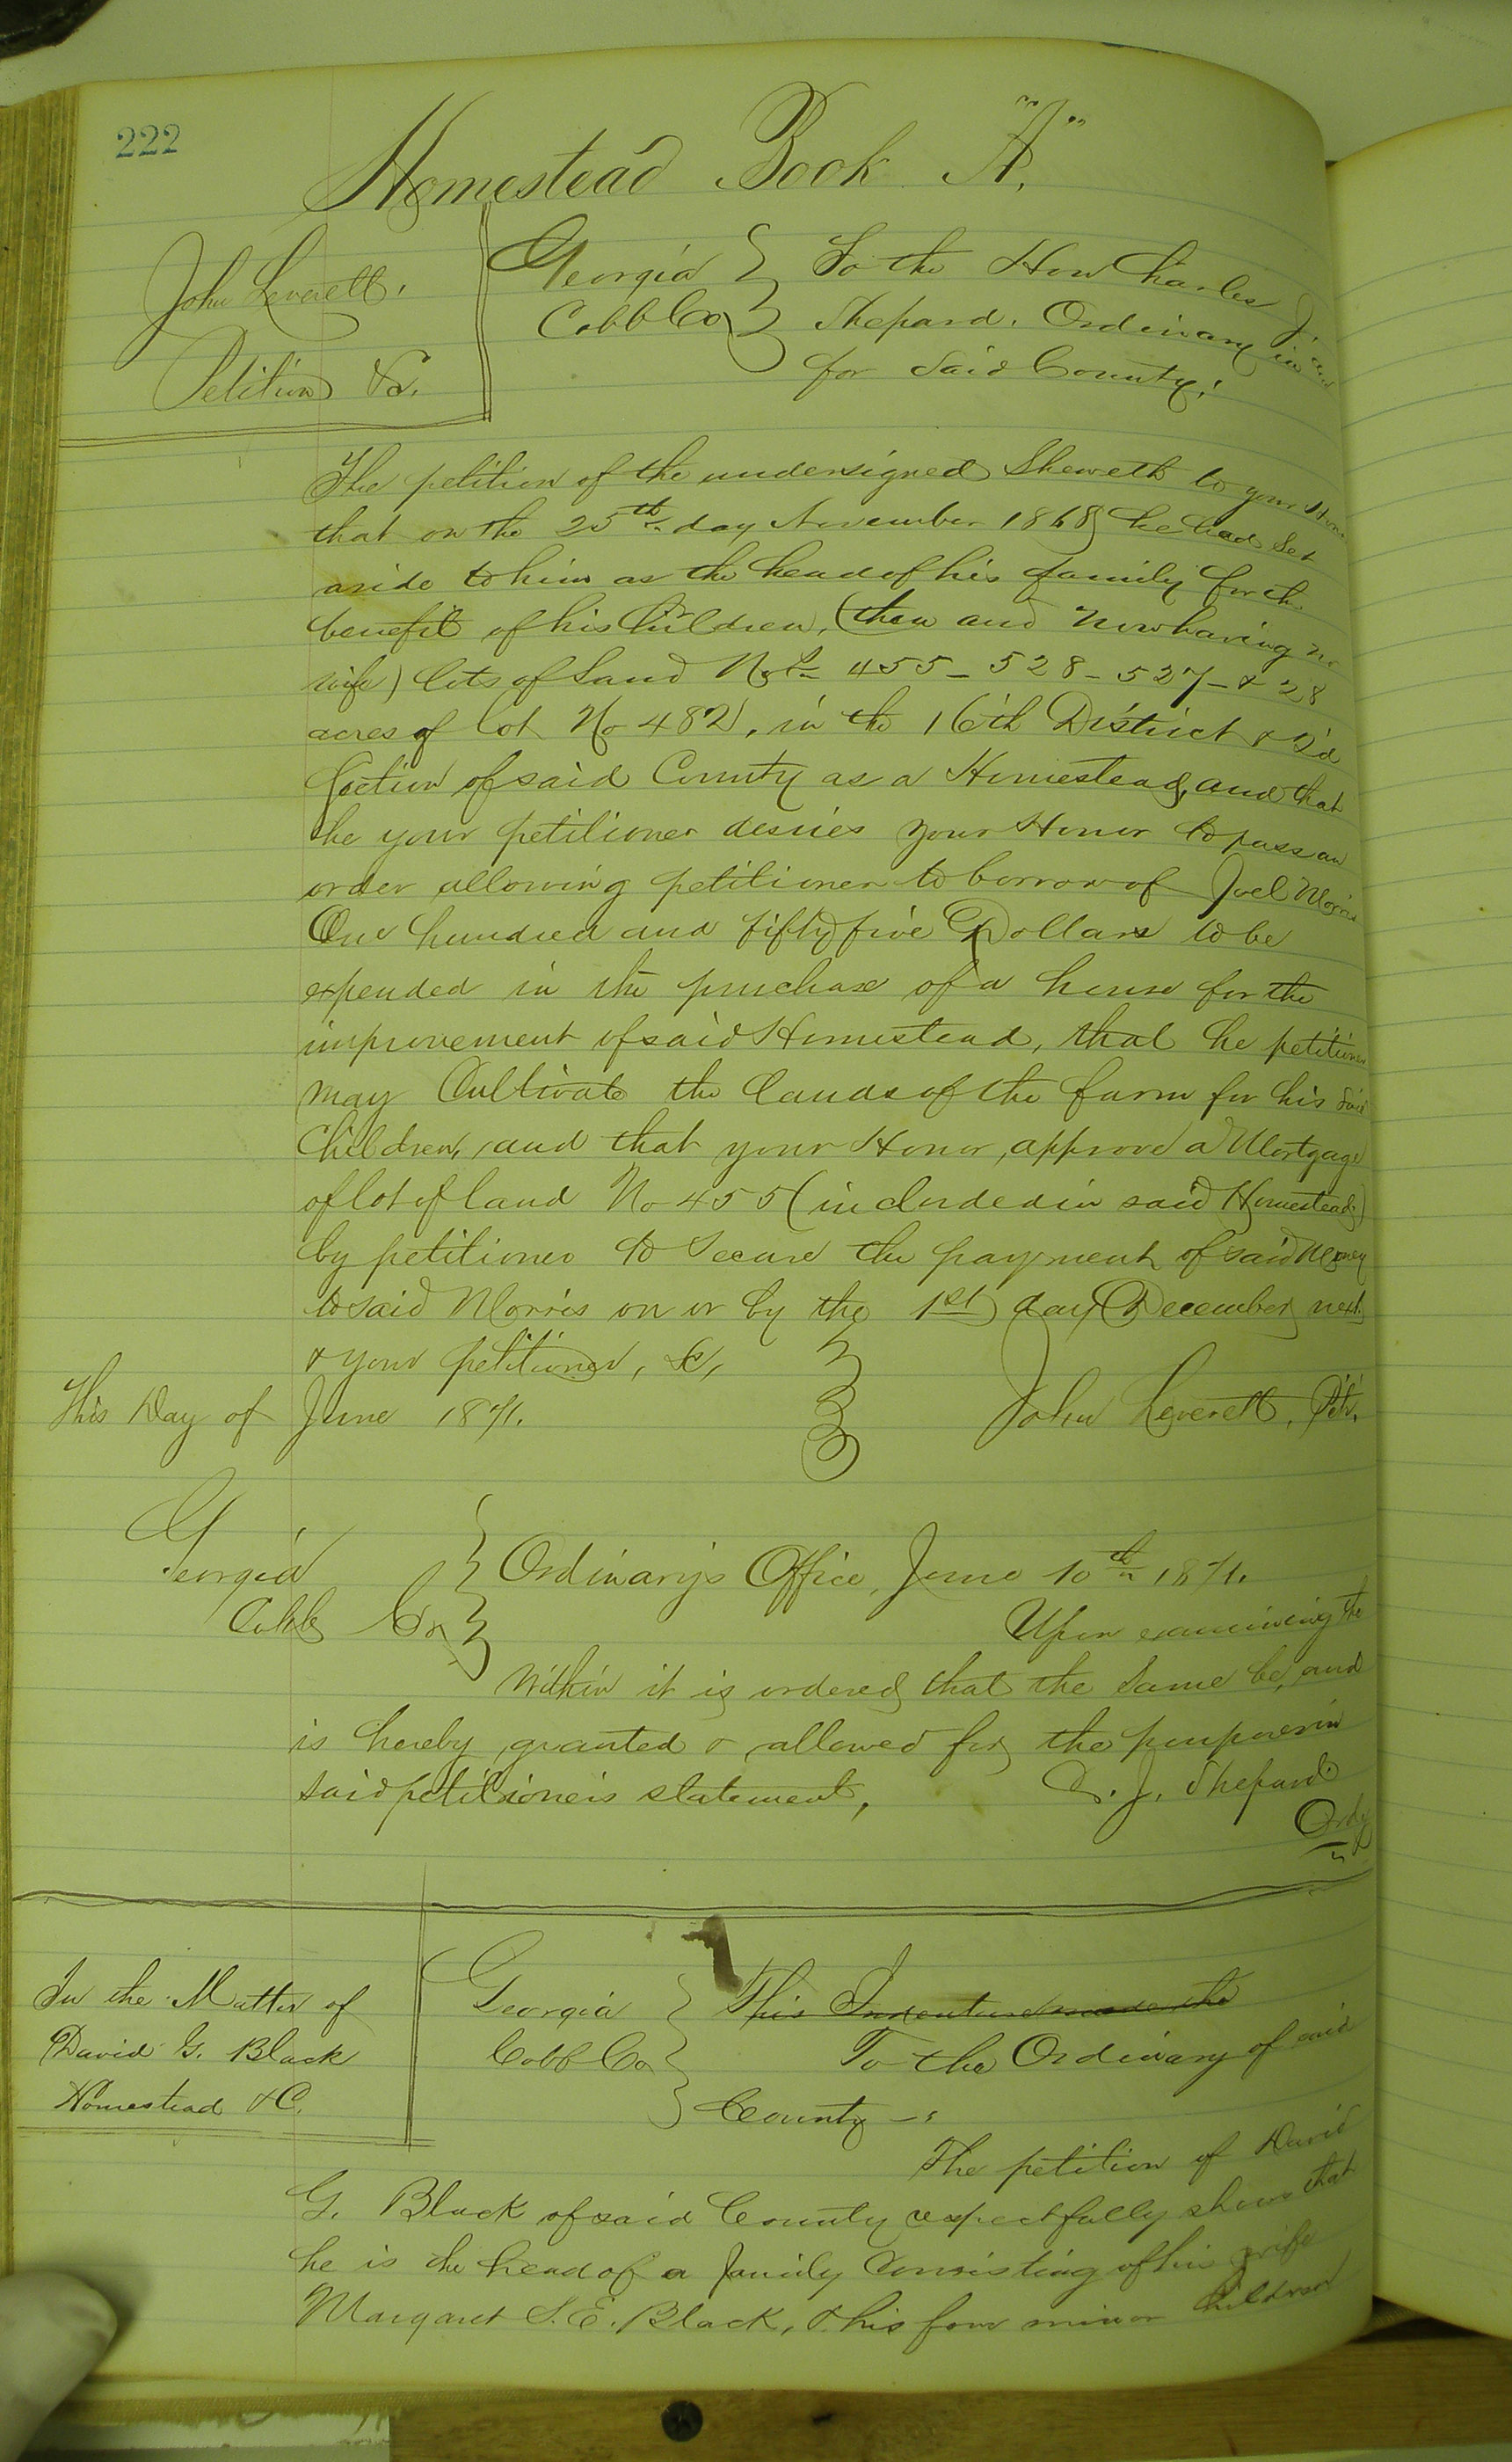 222
Homestead Book "A".
John Leverett.
Petition &c.
Georgia
Cobb Co
To the Hon Charles J.
Shepard. Ordinary in and
for said County.
The petition of the undersigned Sheweth to your Honor
that on the 25th day November 1868 he had Set
aside to him as the head of his family for the
benefit of his Children, (then and now having no
wife) lots of Land Nos 455 - 528 - 527 - & 28
acres of lot No 482, in the 16th District & 2d
Section of said County as a Homestead, and that
he your petitioner desires your Honor to pass an
order allowing petitioner to borrow of Joel Morris
One hundred and fifty five Dollars to be
expended in the purchase of a horse for the
improvement of said Homestead, that he petitioner
may Cultivate the lands of the farm for his said
Children, and that your Honor, approve a Mortgage
of lot of land No 455 (included in said Homestead)
by petitioner to Secure the payment of said Money
to said Morris on or by the 1st day December next
& your petitioner, &c,
This Day of June 1871.
John Leverett, Petr.
Georgia
Cobb Co
Ordinary's Office, June 10th 1871.
Upon examining the
within it is ordered that the Same be, and
is hereby granted & allowed for the purposes in
said petitioner's statement,
C. J. Shepard
Ordy
In the Matter of
David G. Black
Homestead &C.
Georgia
Cobb Co
This Indenture made the
To the Ordinary of said
County -:
The petition of David
G. Black of said County respectfully shows that
he is the head of a family Consisting of his wife
Margaret S. E. Black, & his four minor Children